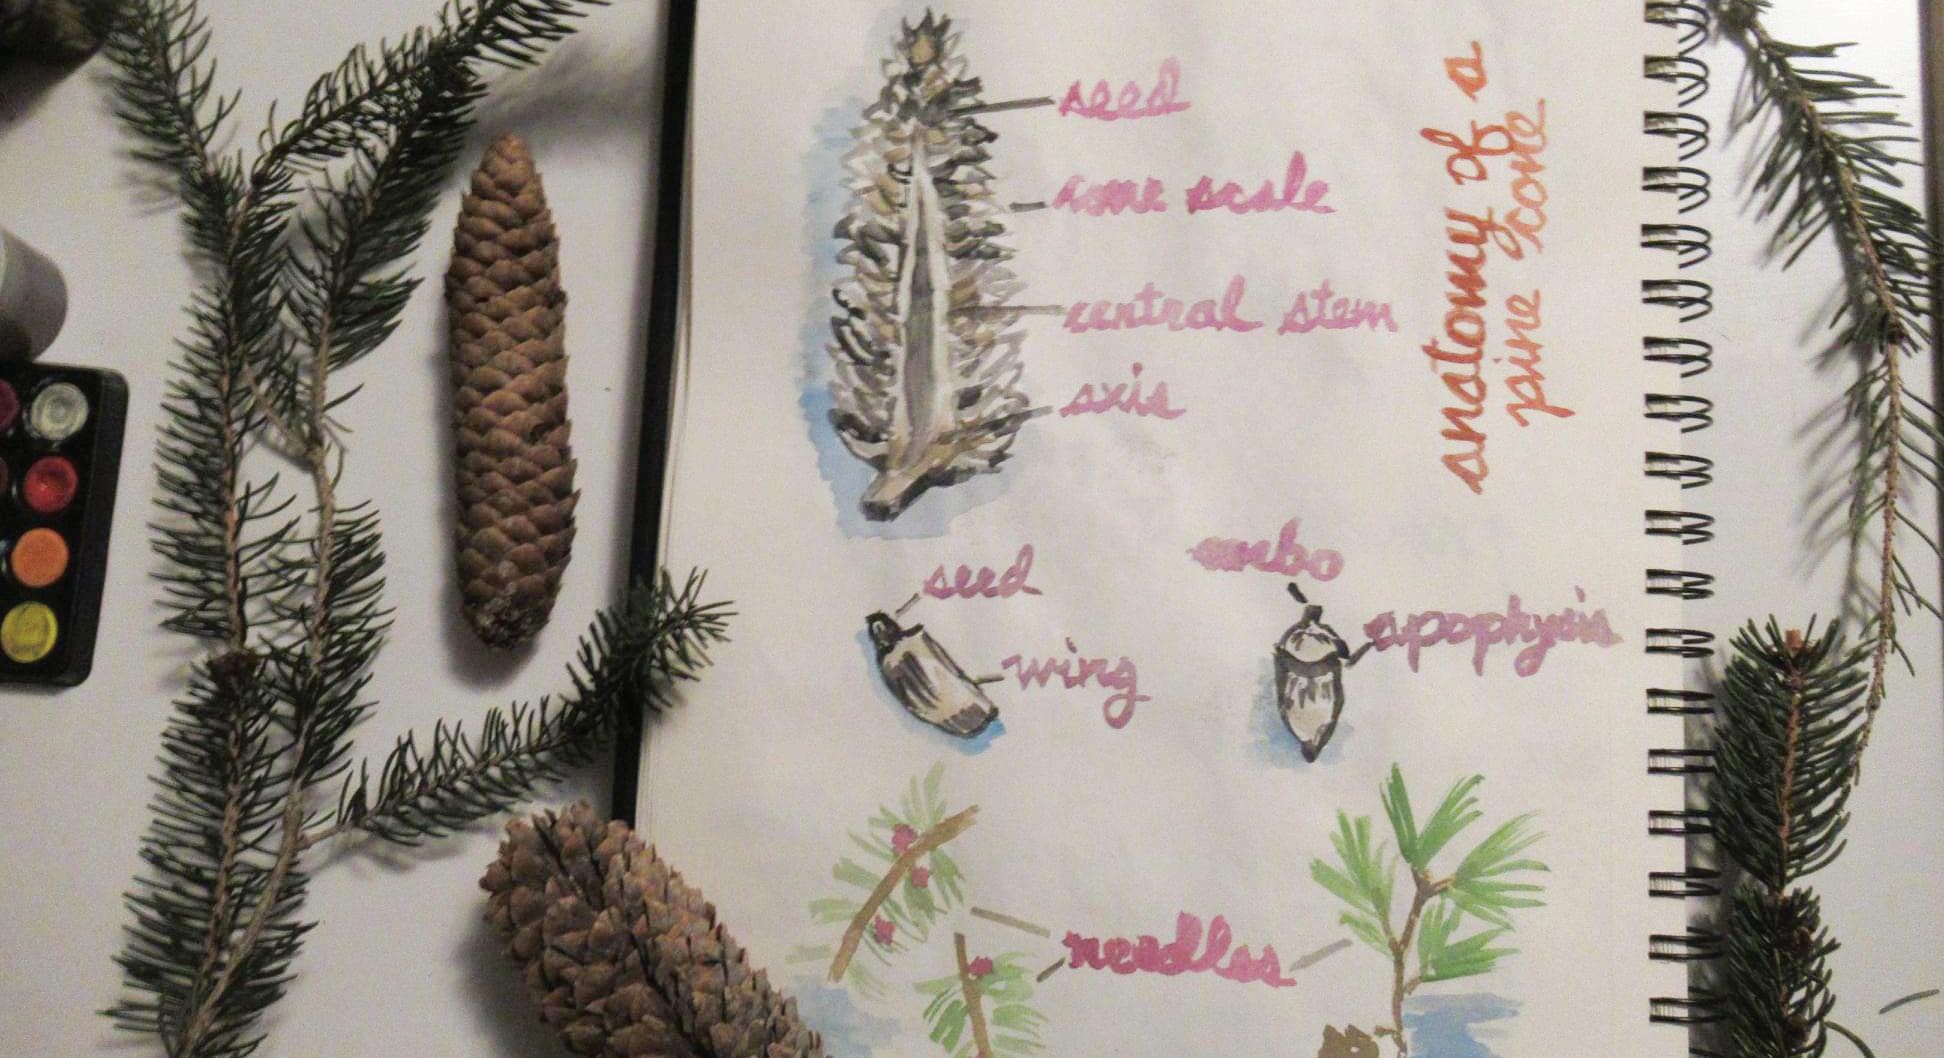 seed
cone scale
central stem
axis
anatomy of a
pine cone
seed
wing
umbo
apophysis
needles